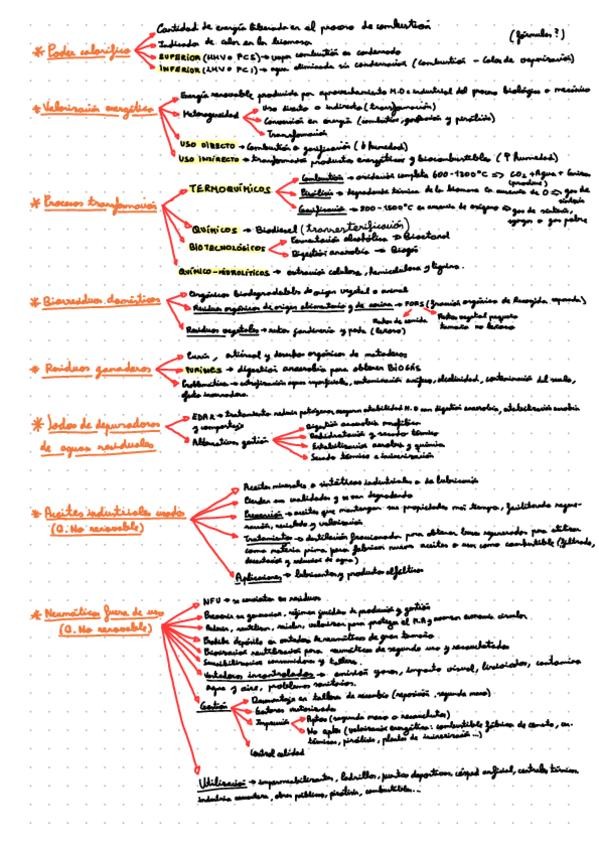 Cantidad de energía liberada en el proceso de combustión
(fórmulas?)
* Poder calorífico
Indicador de calor en la biomasa
SUPERIOR (HHV o PCS) → vapor combustión es condensado
INFERIOR (LHV o PCI) → agua eliminada sin condensación (combustión - calor de vaporización)
Energía renovable producida por aprovechamiento M.O e industrial del proceso biológico o mecánico
* Valorización energética
Heterogeneidad
Uso directo o indirecto (transformación)
Conversión en energía (combustión, gasificación y pirólisis)
Transformación
USO DIRECTO → Combustión o gasificación (↓ humedad)
USO INDIRECTO → transformado productos energéticos y biocombustibles (↑ humedad)
* Procesos transformación
TERMOQUÍMICOS
Combustión → oxidación completa 600-1300°C => CO2 + Agua + Cenizas
Pirólisis → degradación térmica de la biomasa en ausencia de O => gas de síntesis
Gasificación → 700-1500°C en ausencia de oxígeno => gas de síntesis, syngas o gas pobre
QUÍMICOS → Biodiesel (transesterificación)
BIOTECNOLÓGICOS
Fermentación alcohólica → Bioetanol
Digestión anaerobia → Biogás
QUÍMICO-HIDROLÍTICOS → extracción celulosa, hemicelulosa y lignina.
* Biorresiduos domésticos
Orgánicos biodegradables de origen vegetal o animal
Residuos orgánicos de origen alimentario y de cocina → FORS (fracción orgánica de Recogida separada)
Restos de comida
Restos vegetal pequeño tamaño no leñoso
Residuos vegetales → restos jardinería y poda (leñoso)
* Residuos ganaderos
Purín, estiércol y desechos orgánicos de mataderos
PURINES → digestión anaerobia para obtener BIOGÁS
Problemática → eutrofización aguas superficiales, contaminación acuífero, alcalinidad, contaminación del suelo,
efecto invernadero.
* Lodos de depuradoras
de aguas residuales
EDAR → tratamiento reducir patógenos, asegurar estabilidad M.O con digestión anaerobia, estabilización aerobia
y compostaje
Alternativas gestión
Digestión anaerobia mesofílica
Deshidratación y secado térmico
Estabilización aerobia y química
Secado térmico e incineración
* Aceites industriales usados
(Q. No renovable)
Aceites minerales o sintéticos industriales o de lubricación
Pierden sus cualidades y se van degradando
Prevención → aceites que mantengan sus propiedades más tiempo, facilitando regeneración, reciclado y valorización
Tratamientos → destilación fraccionada para obtener bases regeneradas para utilizar
como materia prima para fabricar nuevos aceites o usar como combustible (filtrado,
decantación y reducción de agua)
Aplicaciones → lubricantes y productos asfálticos
* Neumáticos fuera de uso
(Q. No renovable)
NFU → se convierten en residuos
Prevenir su generación, régimen jurídico de producción y gestión
Reducir, reutilizar, reciclar, valorizar para proteger el M.A y avanzar economía circular.
Prohibe depósito en vertedero de neumáticos de gran tamaño.
Preparación reutilización para neumáticos de segundo uso y recauchutados
Sensibilización consumidores y talleres.
Vertederos incontrolados → emisión gases, impacto visual, lixiviados, contamina
agua y aire, problemas sanitarios.
Gestión
Desmontaje en talleres de recambio (reposición, segunda mano)
Gestores autorizados
Inspección
Aptos (segunda mano o recauchutados)
No aptos (valorización energética: combustible fábricas de cemento, c.
térmicas, pirólisis, plantas de incineración...)
Control calidad
Utilización → impermeabilizantes, ladrillos, pistas deportivas, césped artificial, centrales térmicas
industria cementera, obras públicas, pirólisis, combustibles...